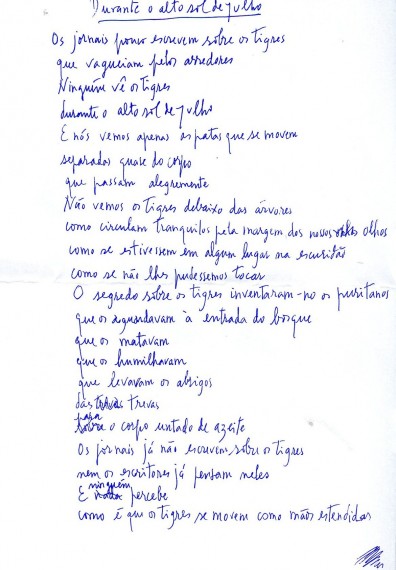 Durante o alto sol de julho
Os jornais pouco escrevem sobre os tigres
que vagueiam pelos arredores
Ninguém vê os tigres
durante o alto sol de julho
E nós vemos apenas as patas que se movem
separadas quase do corpo
que passam alegremente
Não vemos os tigres debaixo das árvores
como circulam tranquilos pela margem dos nossos olhos
como se estivessem em algum lugar na escuridão
como se não lhes pudessemos tocar
O segredo sobre os tigres inventaram-no os puritanos
que os aguardavam à entrada do bosque
que os matavam
que os humilhavam
que levavam os abrigos
das trevas
para
sobre o corpo untado de azeite
Os jornais já não escrevem sobre os tigres
nem os escritores já pensam neles
ninguém
E nada percebe
como é que os tigres se movem como mãos estendidas